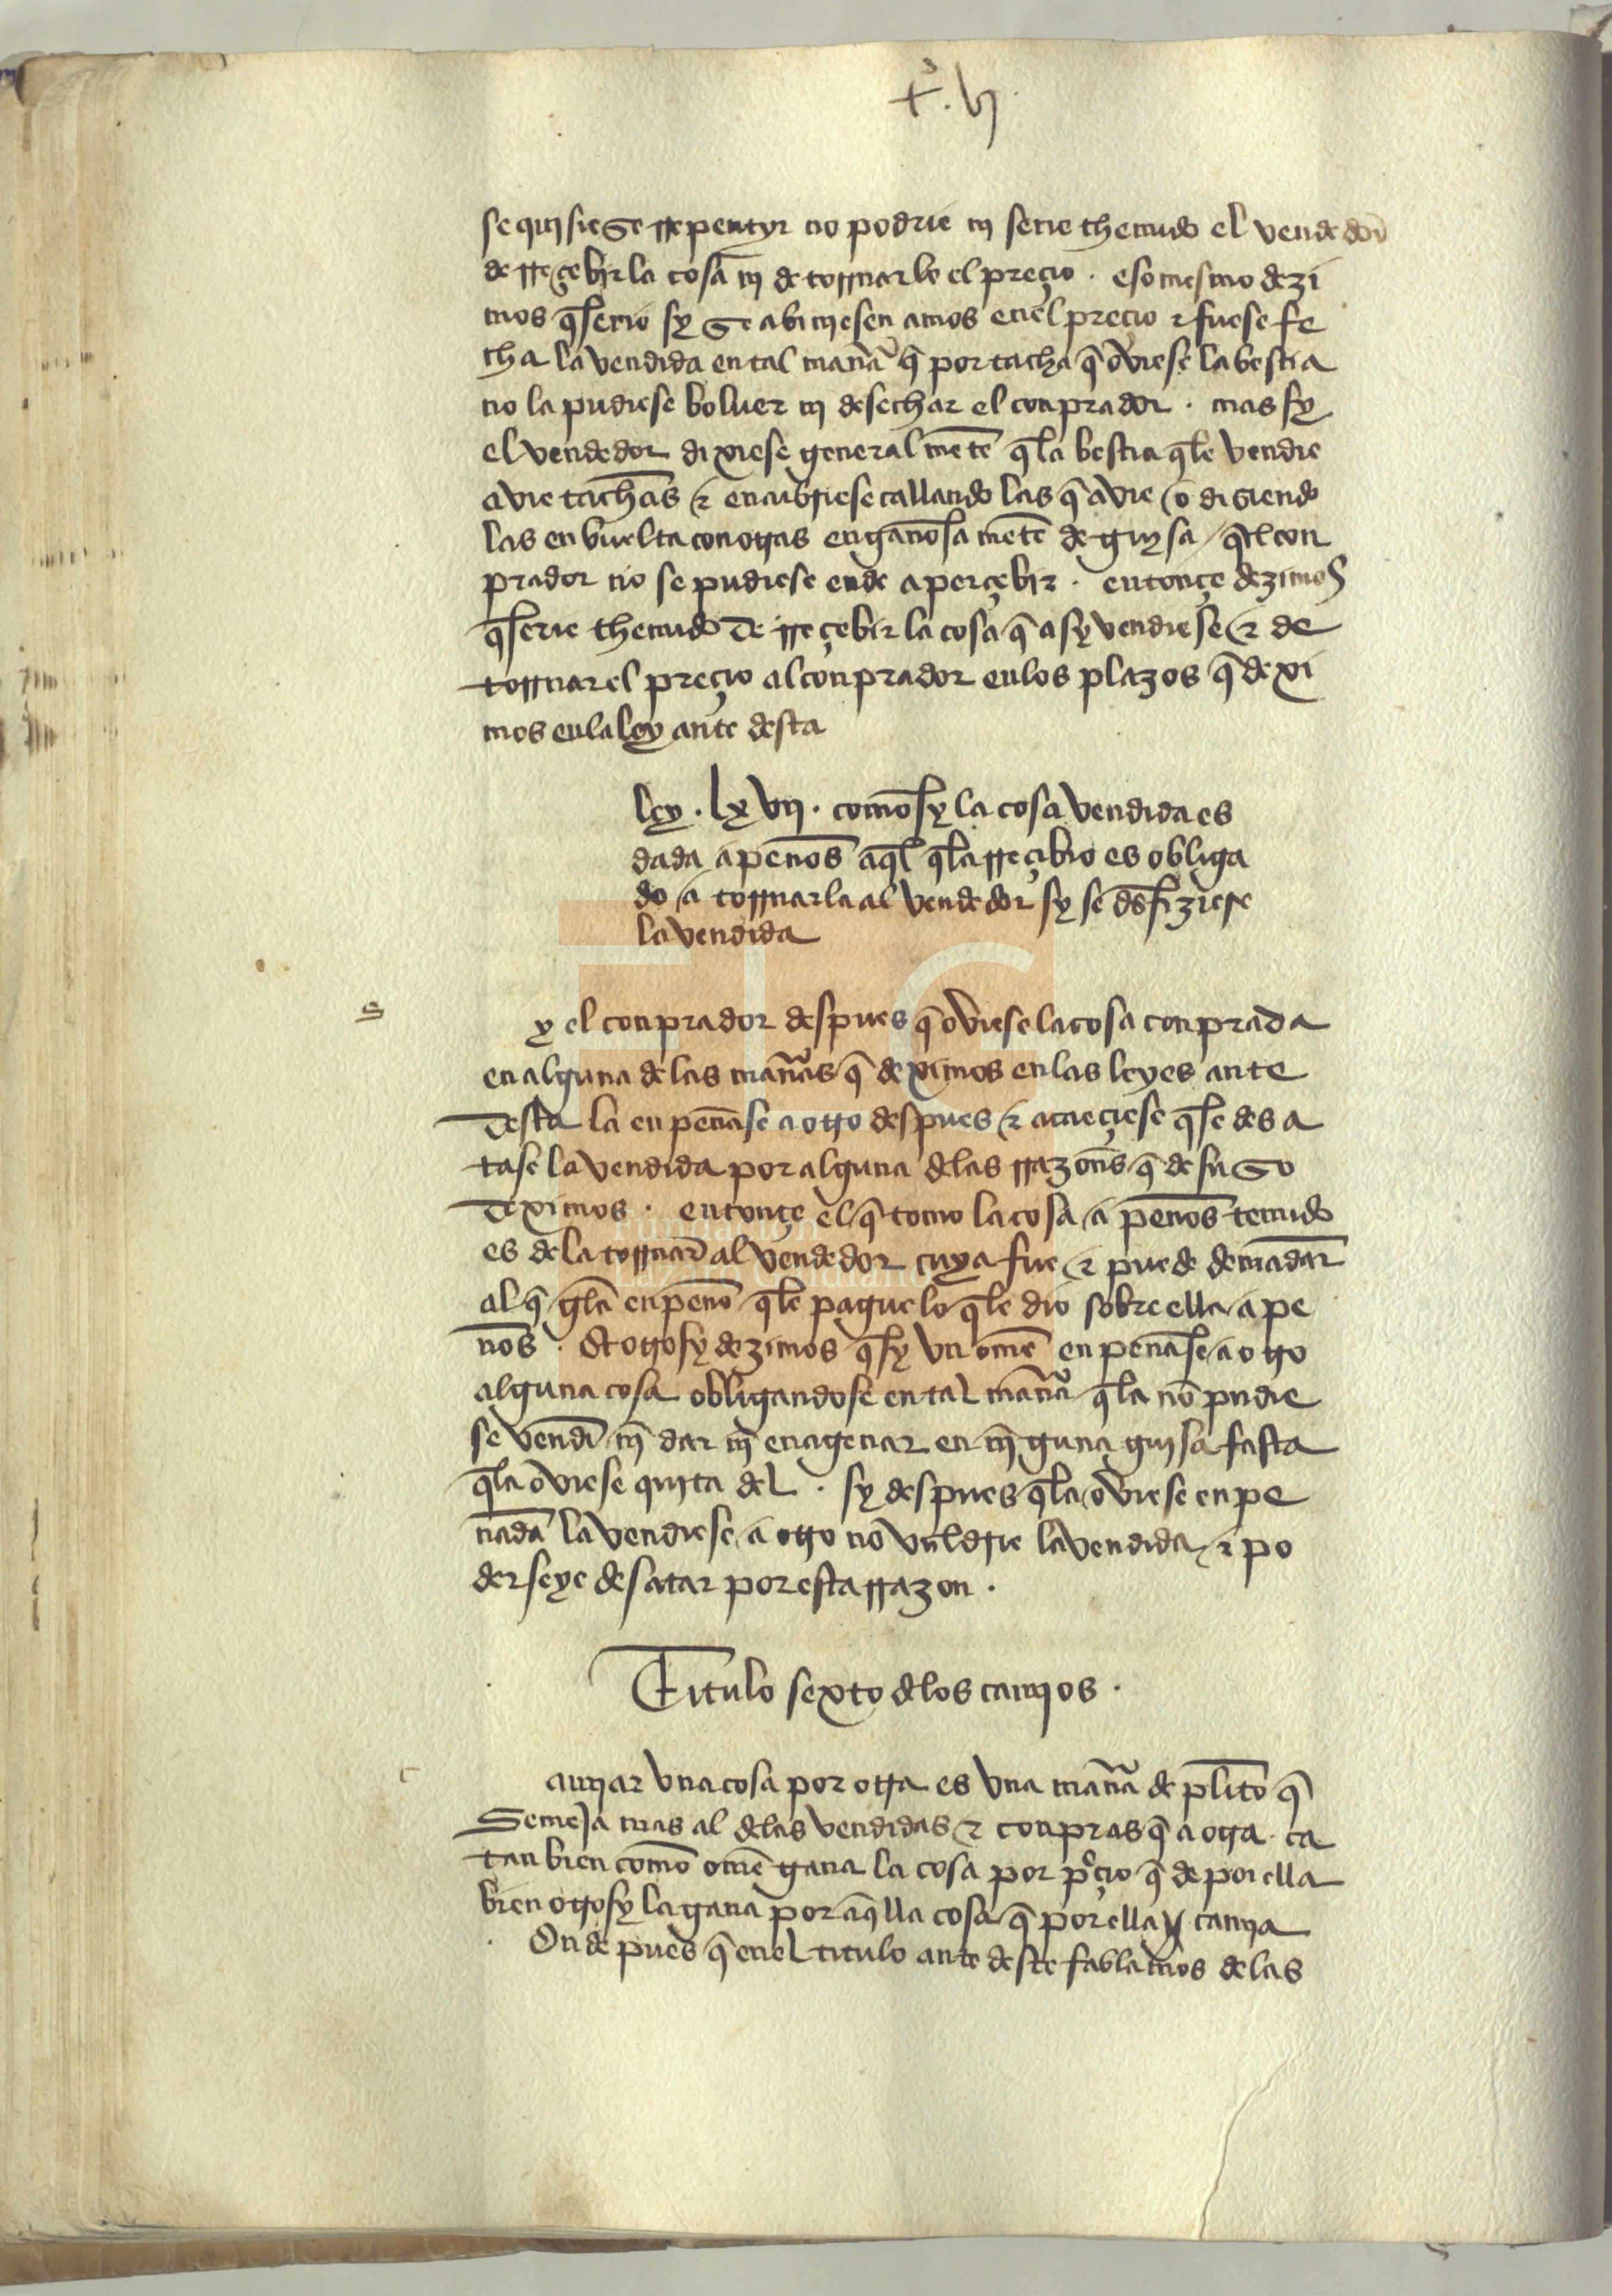 tº. vj
se quisiese rrepentyr no podrie nj serie thenudo el vendedor
de rresçebir la cosa nj de tornarle el preçio . eso mesmo dezi
mos q̃ serie sy se abiniesen amos en el preçio & fuese fe
cha la vendida en tal man̄a q̃ por tacha q̃ oviese la bestia
no la pudiese boluer nj desechar el conprador . mas sy
el vendedor dixiese general mēte q̃ la bestia q̃le vendie
avie tachas & encubriese callando las q̃ avie o disiendo
las en buelta con otras engañosa mēte de guysa q̃l con
prador no se pudiese ende aperçebir . entonçe dezimos
q̃ serie thenudo de rresçebir la cosa q̃ asy vendiese & de
tornar el preçio al conprador en los plazos q̃ dexi
mos en la ley ante desta
ley . lxvij . como sy la cosa vendida es
dada a peños aq̃l q̃la rresçibio es obliga
do a tornarla al vendedor sy se desfiziese
la vendida
s
y el conprador despues q̃ oviese la cosa conprada
en alguna de las man̄as q̃ deximos en las leyes ante
desta la enpeñase a otro despues & acaeçiese q̃ se desa
tase la vendida por alguna delas rrazon̄s q̃ de suso
deximos . entonçe el q̃ tomo la cosa a peños tenudo
es de la tornar al vendedor cuya fue & puede demādar
al q̃ gela enpeño q̃le pague lo q̃le dio sobre ella a pe
ños . Et otrosy dezimos q̃ sy vn ome enpeñase a otro
alguna cosa obligandose en tal man̄a q̃ la no pudie
se vend̄ nj dar nj enagenar en nj̄guna guisa fasta
q̃la oviese quita del . sy despues q̃la oviese enpe
ñada la vendiese a otro no valdrie la vendida & po
derseye desatar por esta rrazon .
Titulo sexto delos camios .
c
amiar vna cosa por otra es vna man̄a de pl̄ito q̃
Semeja mas al delas vendidas & conpras q̃ a otra . ca
tan bien como ome gana la cosa por pºçio q̃ de por ella
bien otrosy la gana por aq̃lla cosa q̃ por ella camia
Onde pues q̃ en el titulo ante deste fablamos de las